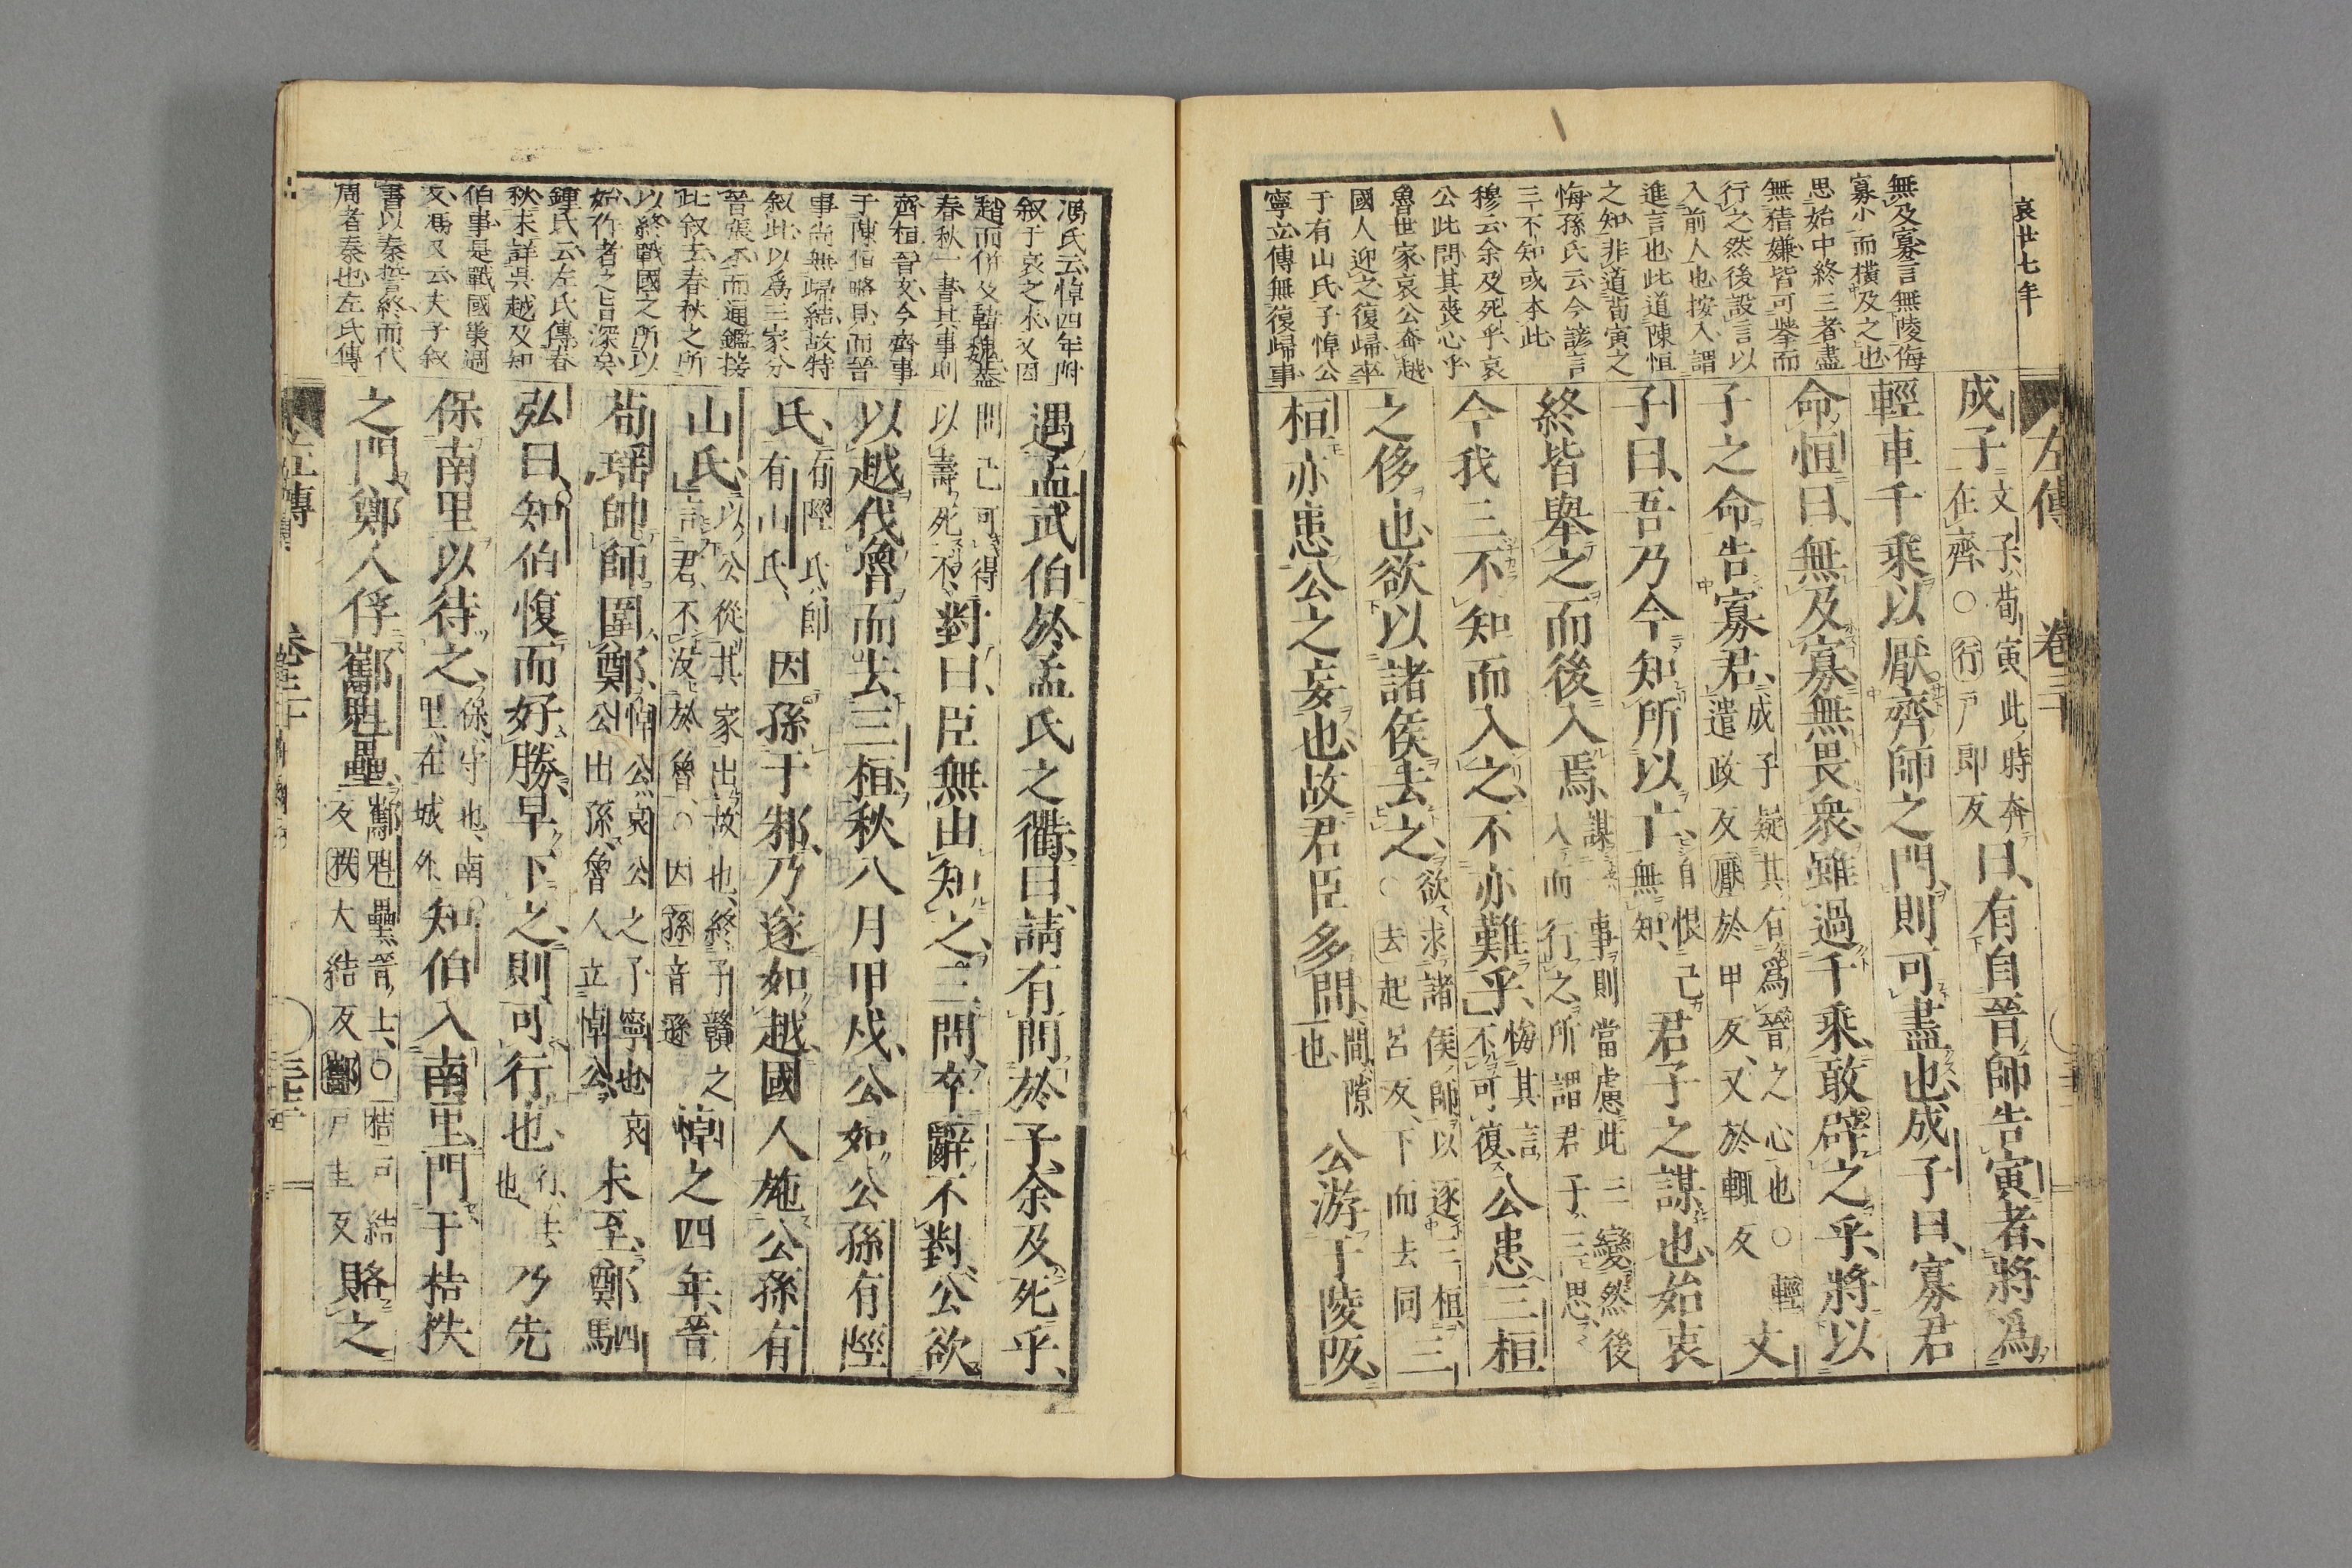 哀廿七年
左傳 卷三十
無及寡言無陵侮
寡小而橫及之也
思始中終三者盡
無猜嫌皆可舉而
行之然後設言以
入前人也按入謂
進言也此道陳恒
之知非道荀寅之
悔孫氏云今諺言
三不知或本此
穆云余及死乎哀
公此問其喪心乎
魯世家哀公奔越
國人迎之復歸卒
于有山氏子悼公
寧立傳無復歸事
成子文子荀寅此時奔在齊○行戸郎反曰有自晉師告寅者將爲
輕車千乘以厭齊師之門則可盡也成子曰寡君
命恒曰無及寡無畏衆雖過千乘敢辟之乎將以
子之命告寡君成子疑其有爲晉之心也○輕遣政反厭於甲反又於輒反文
子曰吾乃今知所以亡自恨己無知君子之謀也始衷
終皆舉之而後入焉謀一事則當慮此三變然後入而行之所謂君子三思
今我三不知而入之不亦難乎悔其言不可復公患三桓
之侈也欲以諸侯去之欲求諸侯師以逐三桓○去起呂反下而去同三
桓亦患公之妄也故君臣多間間隙也公游于陵阪
馮氏云悼四年附
叙于哀之末又因
趙而併及韓魏蓋
春秋一書其事則
齊桓晉文今齊事
于陳恒略見而晉
事尚無歸結故特
叙此以爲三家分
晉張本而通鑑接
此叙去春秋之所
以終戰國之所以
始作者之旨深矣
鍾氏云左氏傳春
秋末詳吳越及知
伯事是戰國樂過
文馮又云夫子叙
書以秦誓終而代
周者秦也左氏傳
遇孟武伯於孟氏之衢曰請有問於子余及死乎
問己可得以壽死不對曰臣無由知之三問卒辭不對公欲
以越伐魯而去三桓秋八月甲戌公如公孫有陘
氏有陘氏即有山氏因孫于邾乃遂如越國人施公孫有
山氏以公從其家出故也終子贛之言君不沒於魯○因孫音遜悼之四年晉
荀瑤帥師圍鄭悼公哀公之子寧也哀公出孫魯人立悼公未至鄭駟
弘曰知伯愎而好勝早下之則可行也行去也乃先
保南里以待之保守也南里在城外知伯入南里門于桔柣
之門鄭人俘酅魁壘酅魁壘晉士○桔戸結反柣大結反酅戸圭反賂之
左傳 卷三十